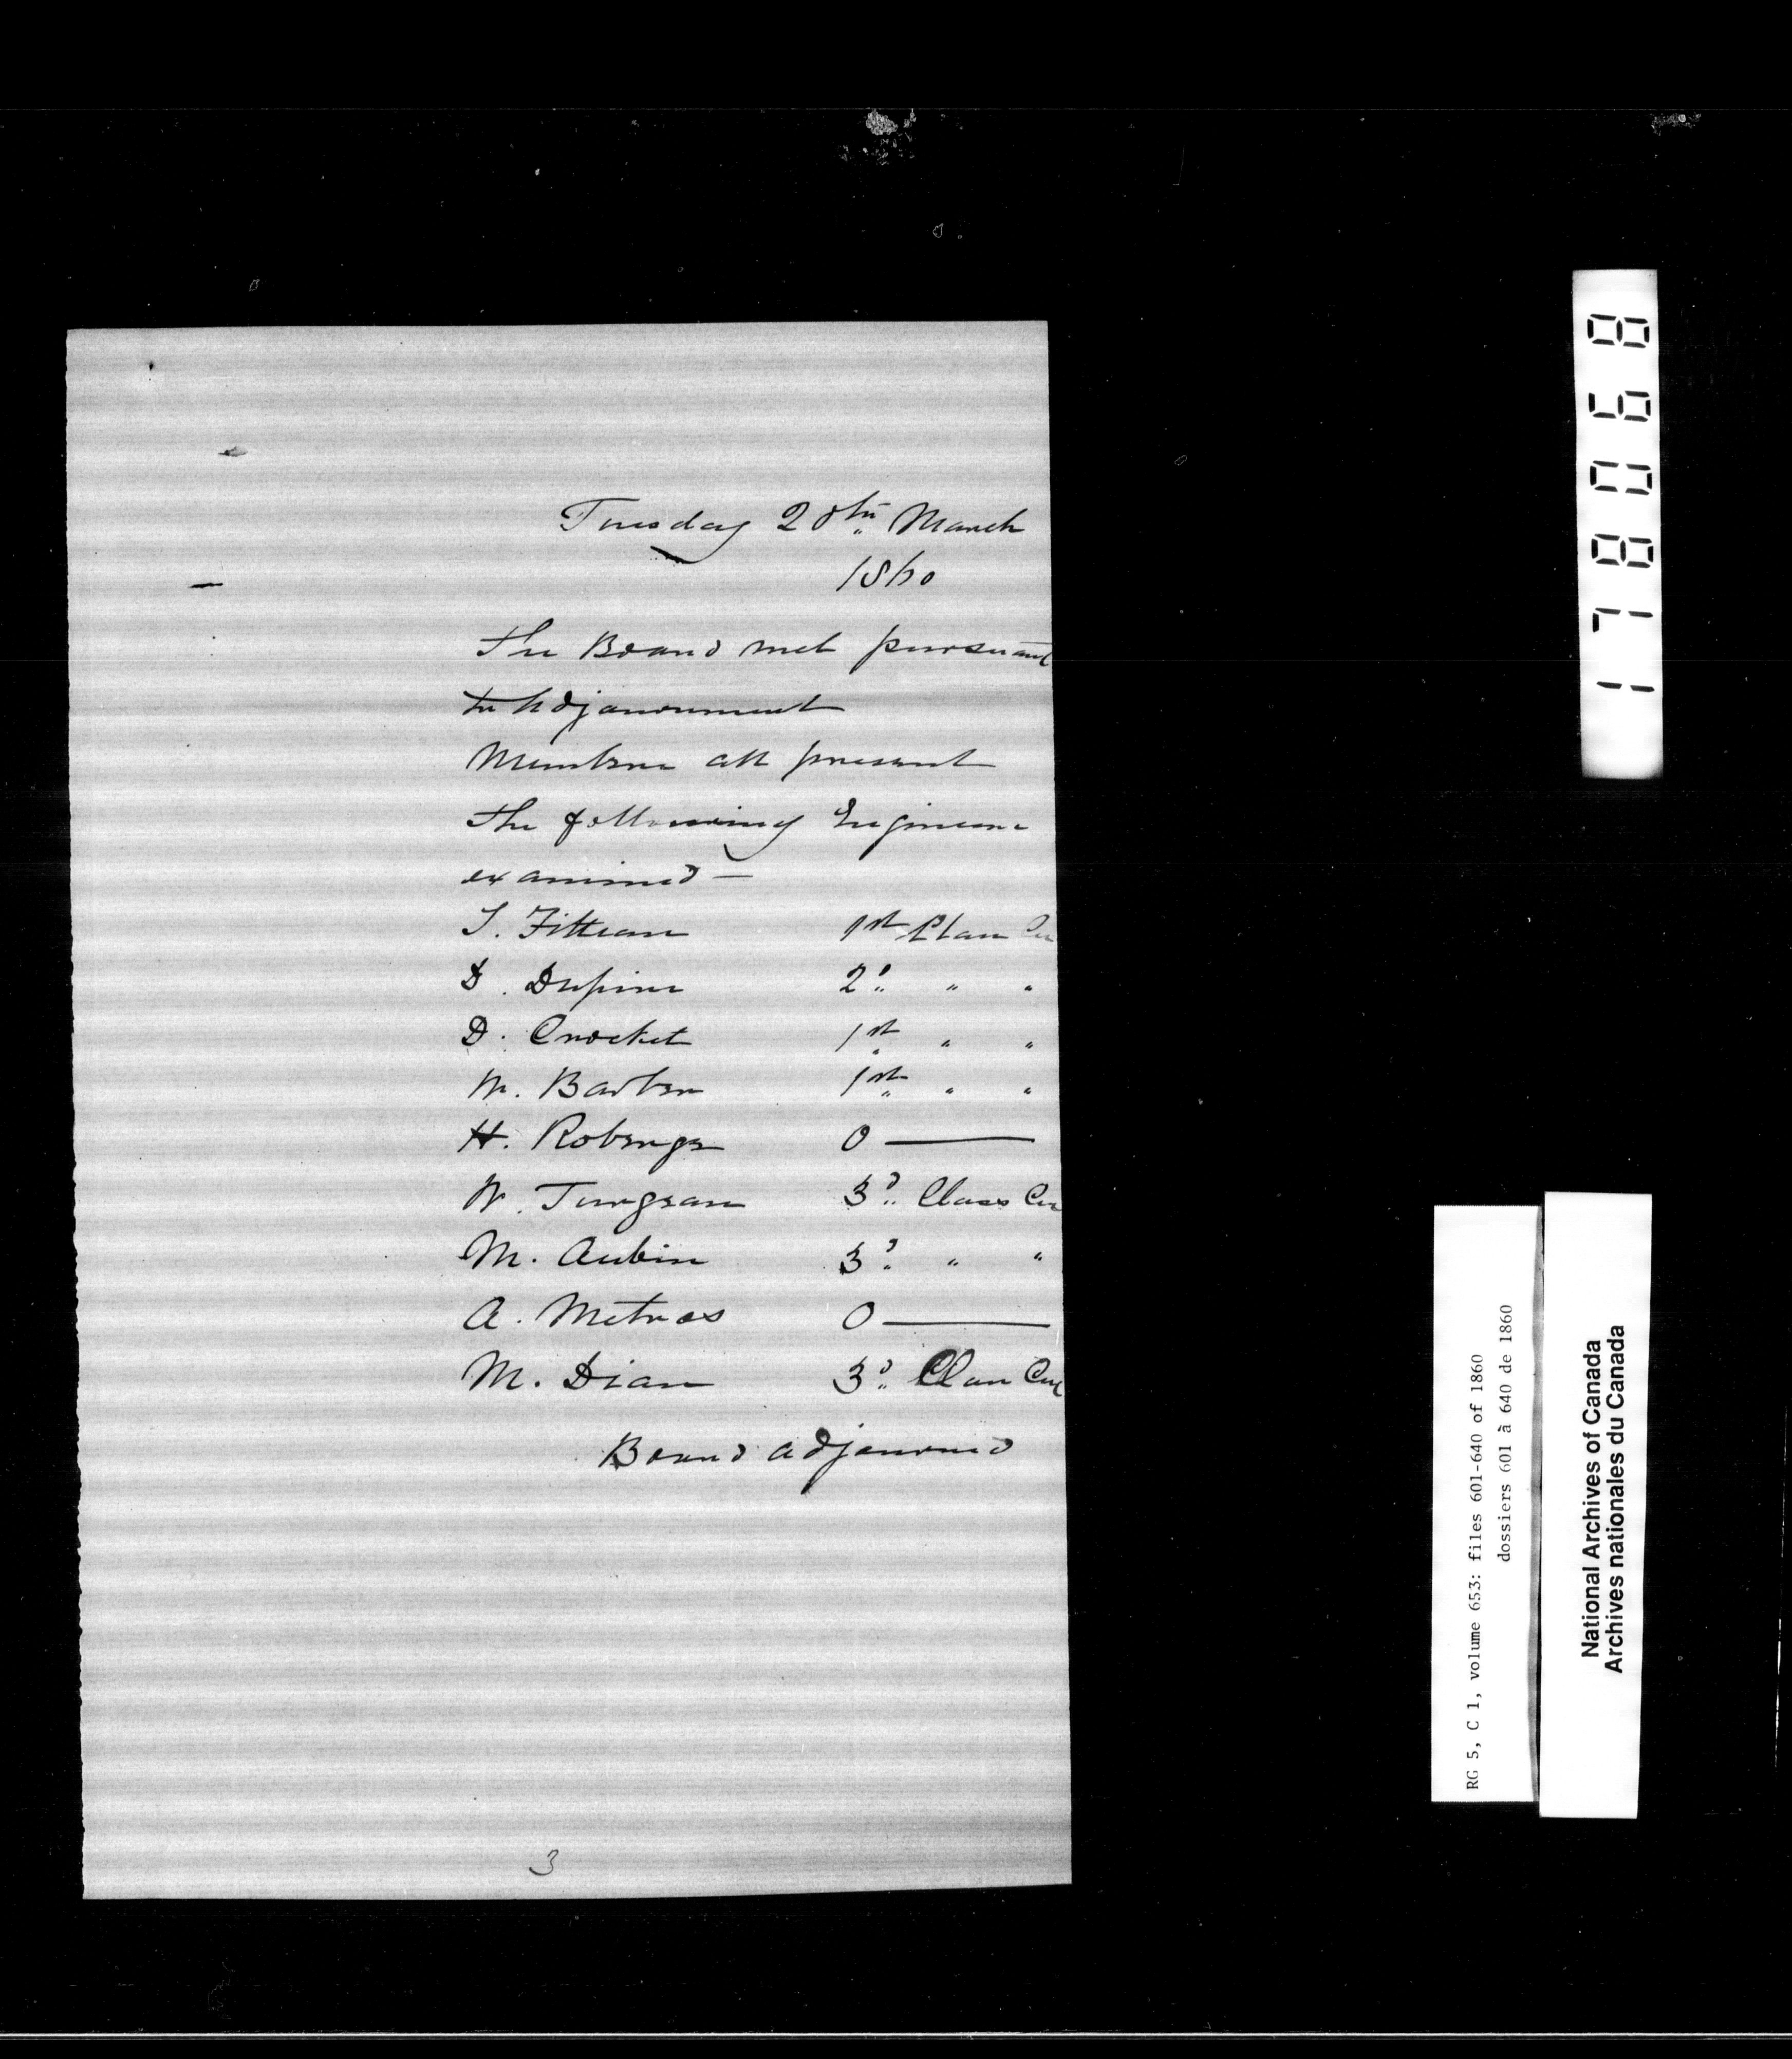 Tuesday 20th March
1860
The Board met pursuant
to Adjournment
Members all present
The following Engineers
examined —
D. Dupine
D. Crocket 1st " "
M. Barber 1st " "
0 ———
W. Turgeon 3d Class Cer
M. Aubin 3d " "
A. Metras 0 ———
M. Dion 3d Class Cer
Board adjourned
3
178068
RG 5, C 1, volume 653: files 601-640 of 1860
dossiers 601 à 640 de 1860
National Archives of Canada
Archives nationales du Canada